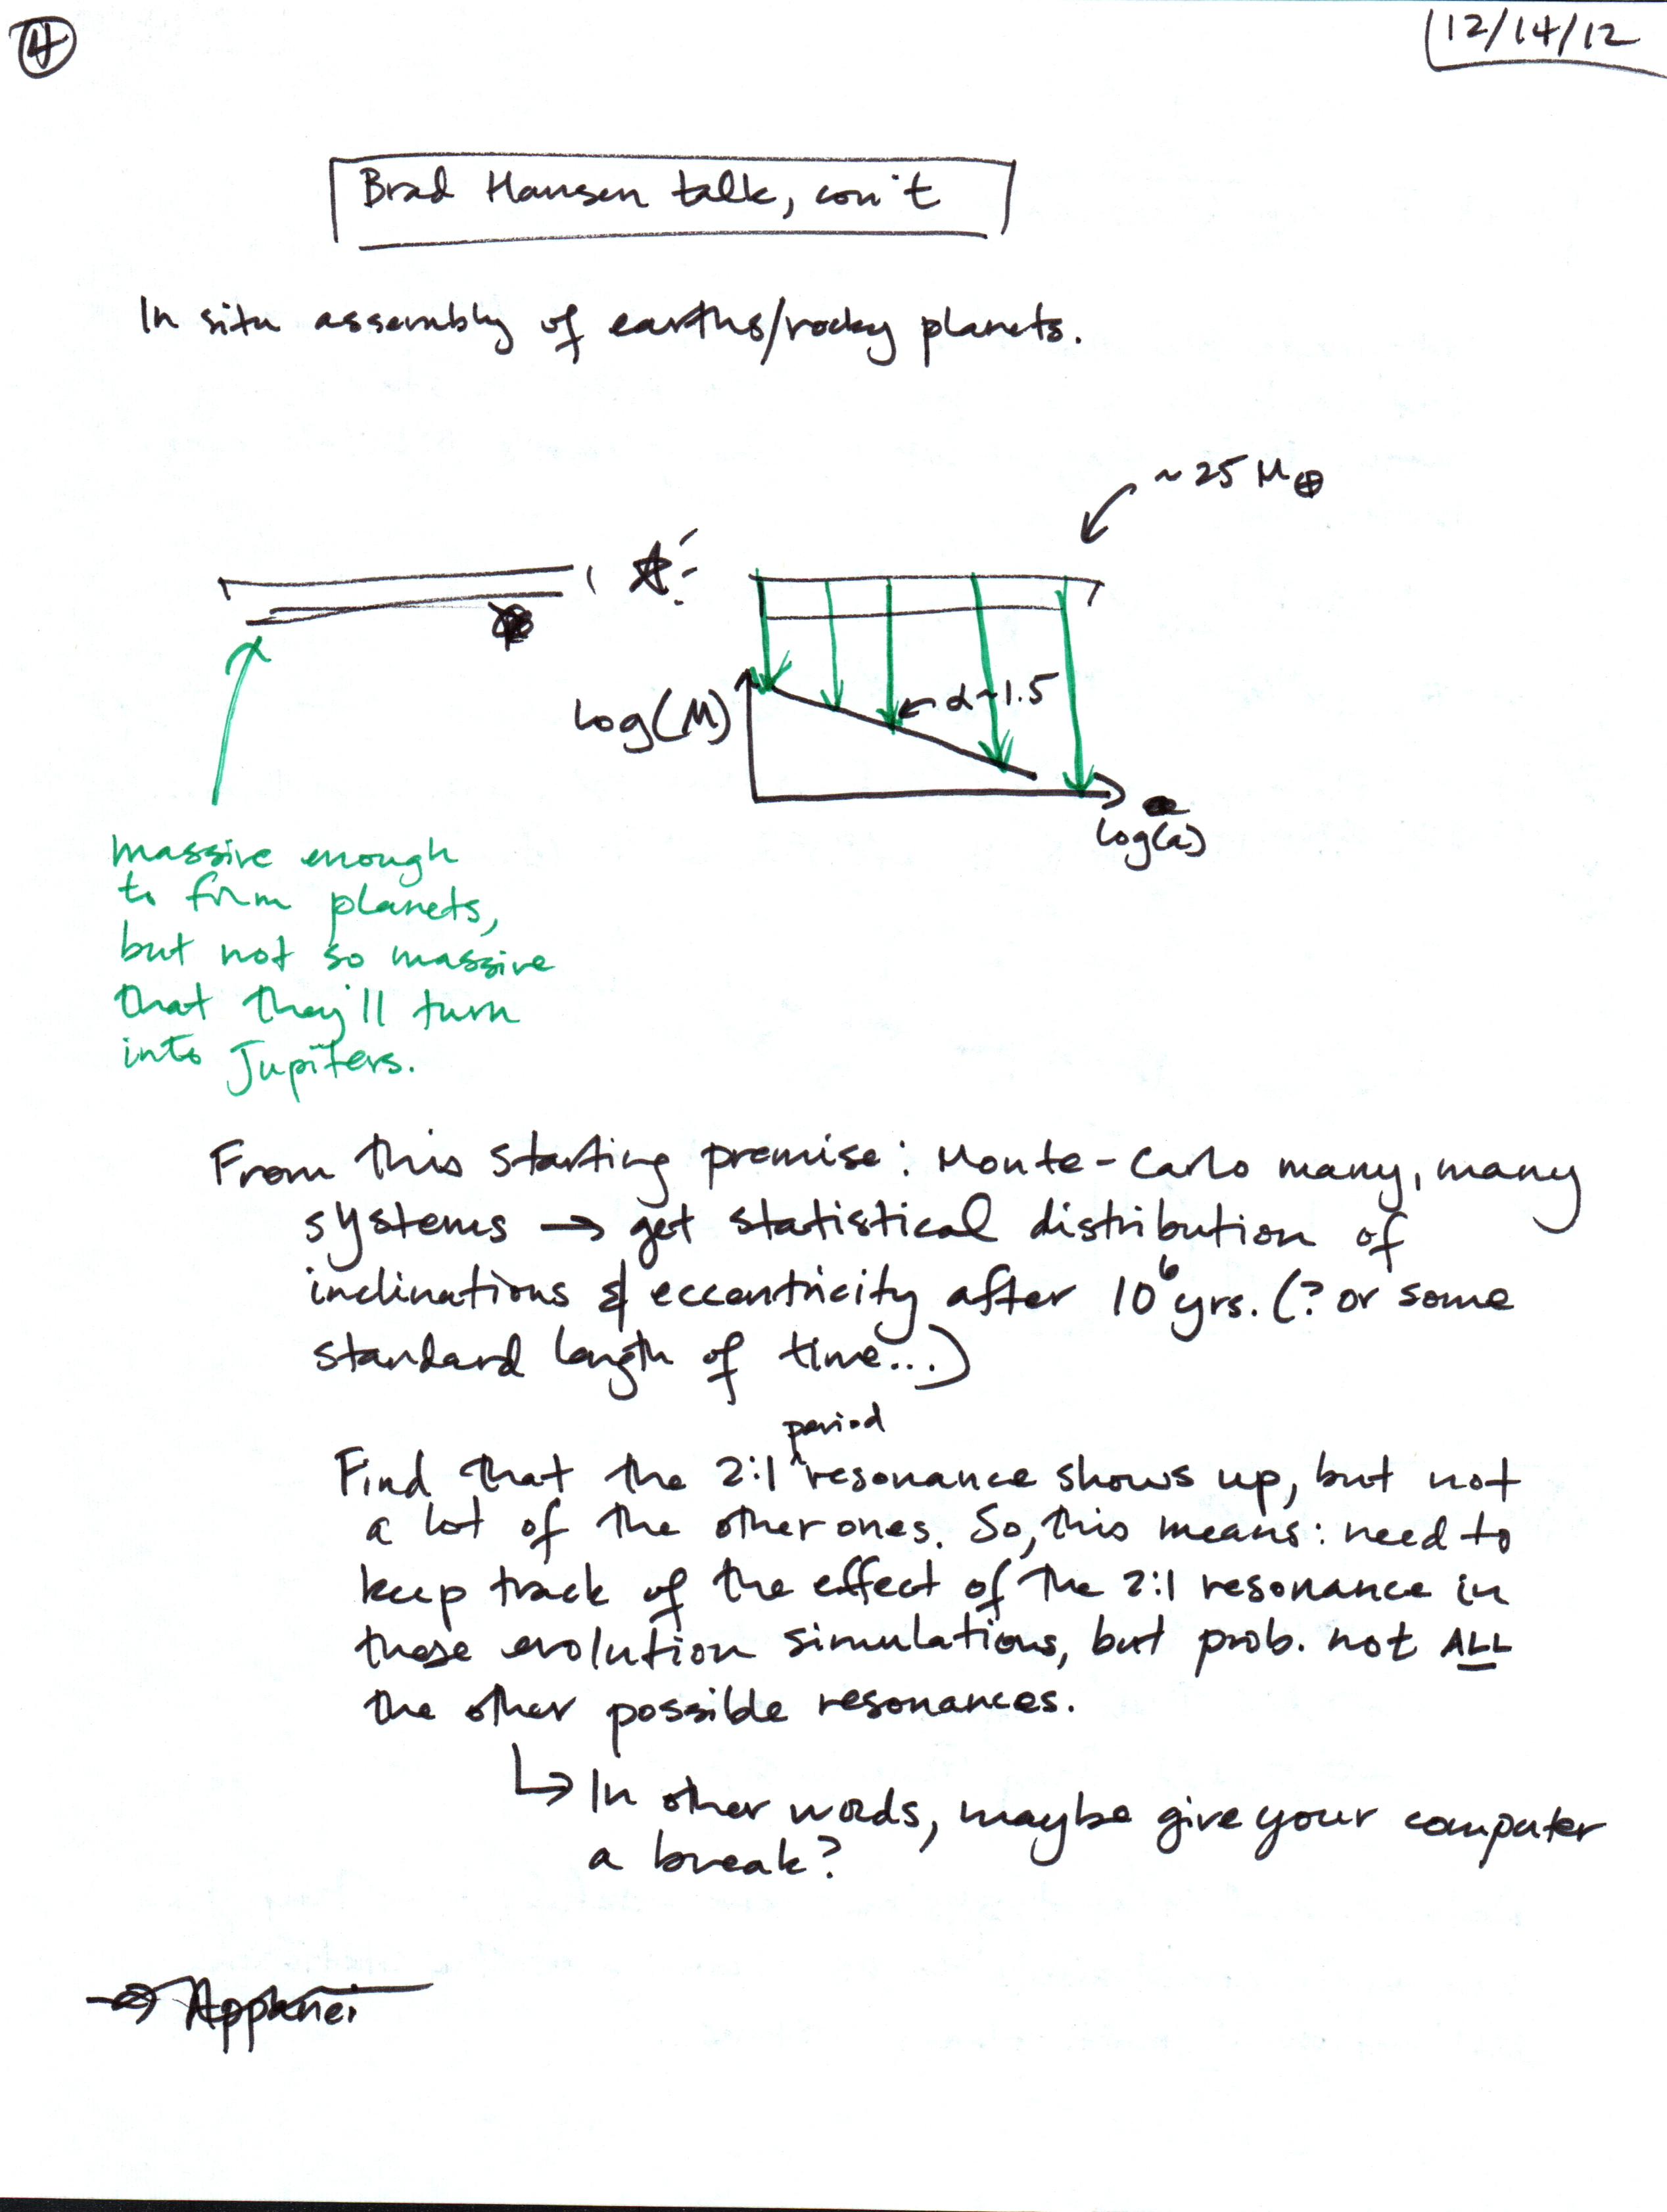 4
12/14/12
Brad Hansen talk, con't
In situ assembly of earths/rocky planets.
~25 M⊕
log(M)
← α~1.5
log(a)
massive enough
to form planets,
but not so massive
that they'll turn
into Jupiters.
From this starting premise: Monte-Carlo many, many
systems → get statistical distribution of
inclinations & eccentricity after 10⁶ yrs. (? or some
standard length of time...)
period
Find that the 2:1 ^ resonance shows up, but not
a lot of the other ones. So, this means: need to
keep track of the effect of the 2:1 resonance in
these evolution simulations, but prob. not ALL
the other possible resonances.
↳ In other words, maybe give your computer
a break?